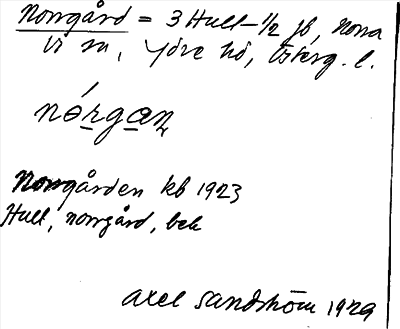 Norrgård = 3 Hult 1/2 jb, Norra
Vi sn, Ydre hd, Österg. l.
nórgan
Norrgården kb 1923
Hult, norrgård, bek
Axel Sandström 1929